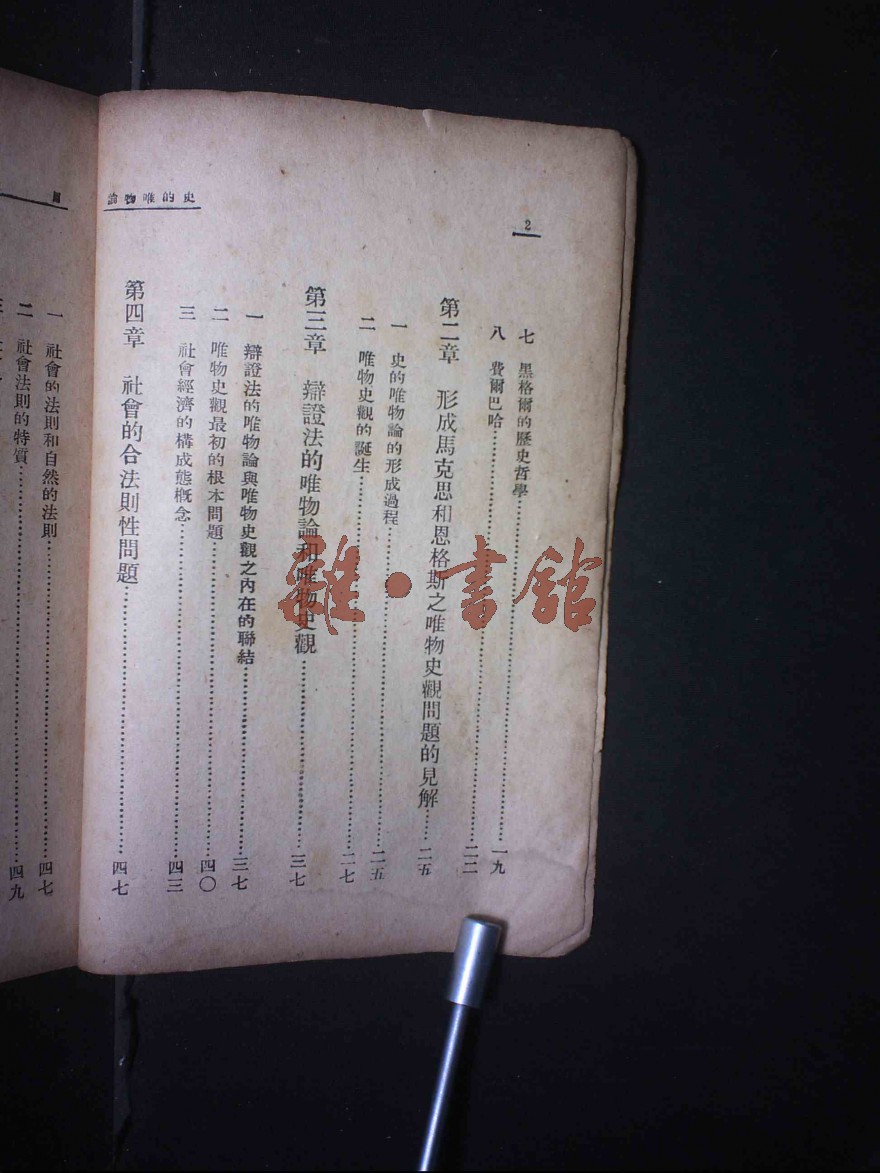 史的唯物論
2
七 黑格爾的歷史哲學……一九
八 費爾巴哈……二二
第二章 形成馬克思和恩格斯之唯物史觀問題的見解……二五
一 史的唯物論的形成過程……二五
二 唯物史觀的誕生……二七
第三章 辯證法的唯物論和唯物史觀……三七
一 辯證法的唯物論與唯物史觀之內在的聯結……三七
二 唯物史觀最初的根本問題……四〇
三 社會經濟的構成態概念……四三
第四章 社會的合法則性問題……四七
一 社會的法則和自然的法則……四七
二 社會法則的特質……四九
雜·書館